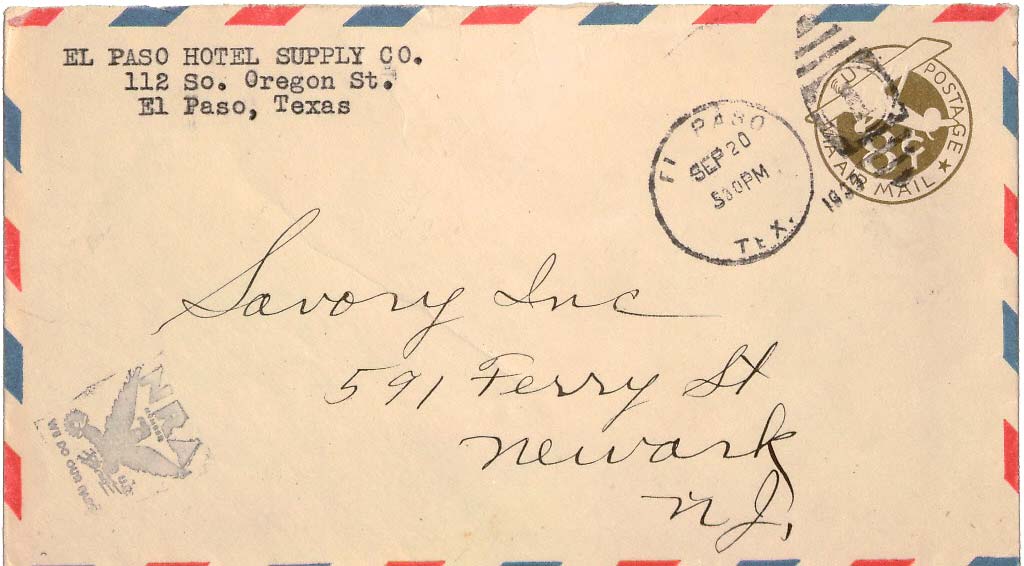 EL PASO HOTEL SUPPLY CO.
112 So. Oregon St.
El Paso, Texas
EL PASO
SEP 20
530PM
TEX.
POSTAGE
VIA AIR MAIL
8¢
Savory Inc
591 Ferry St
Newark
N.J.
NRA
MEMBER
U.S.
WE DO OUR PART